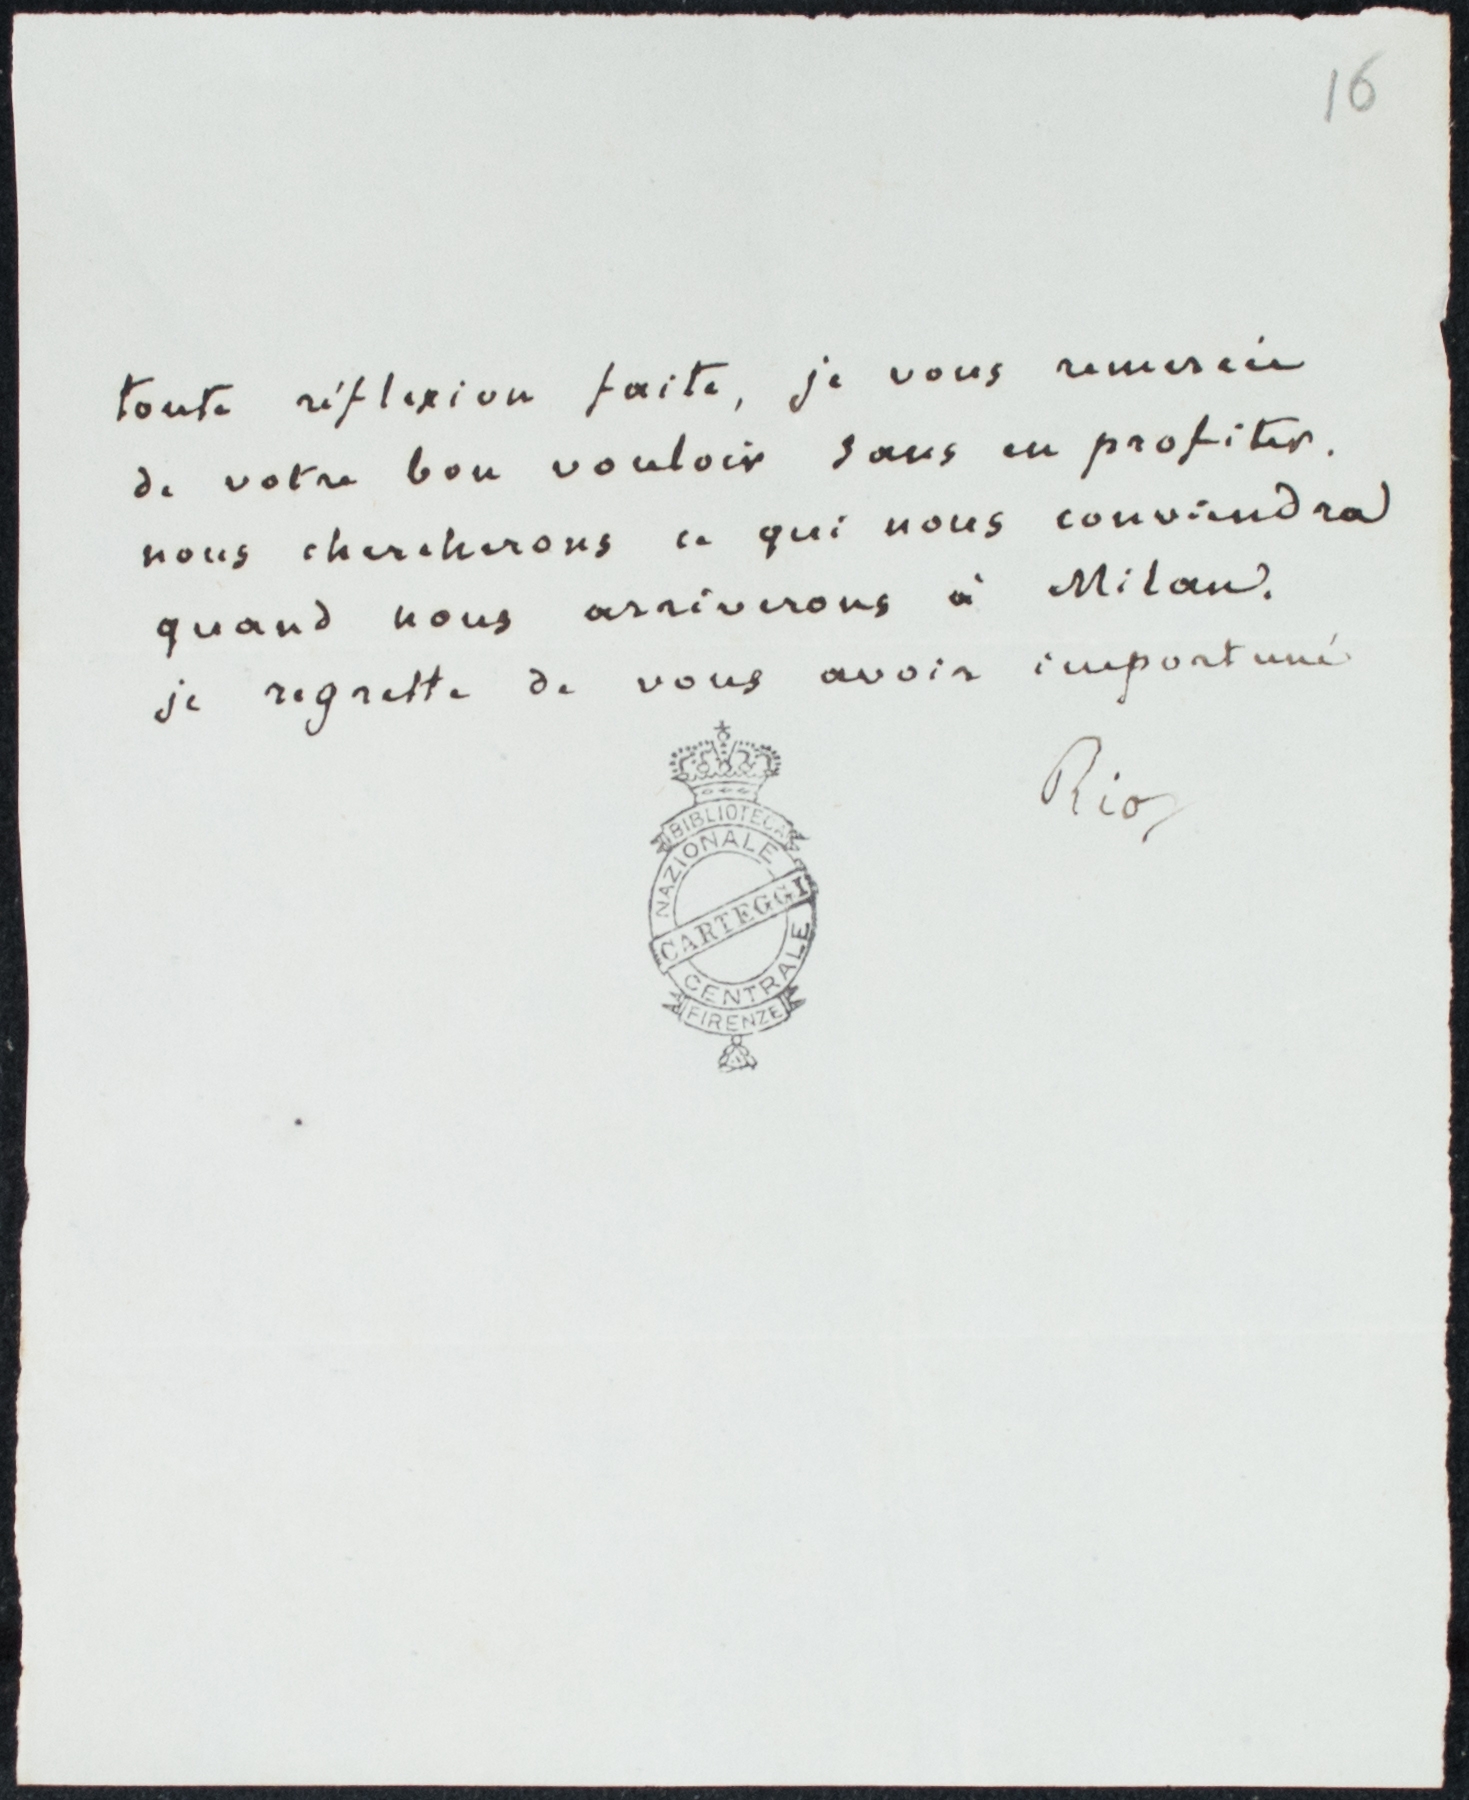 16
toute réflexion faite, je vous remercie
de votre bon vouloir sans en profiter.
nous chercherons ce qui nous conviendra
quand nous arriverons à Milan.
je regrette de vous avoir importuné
Rio
BIBLIOTECA
NAZIONALE
CARTEGGI
CENTRALE
FIRENZE